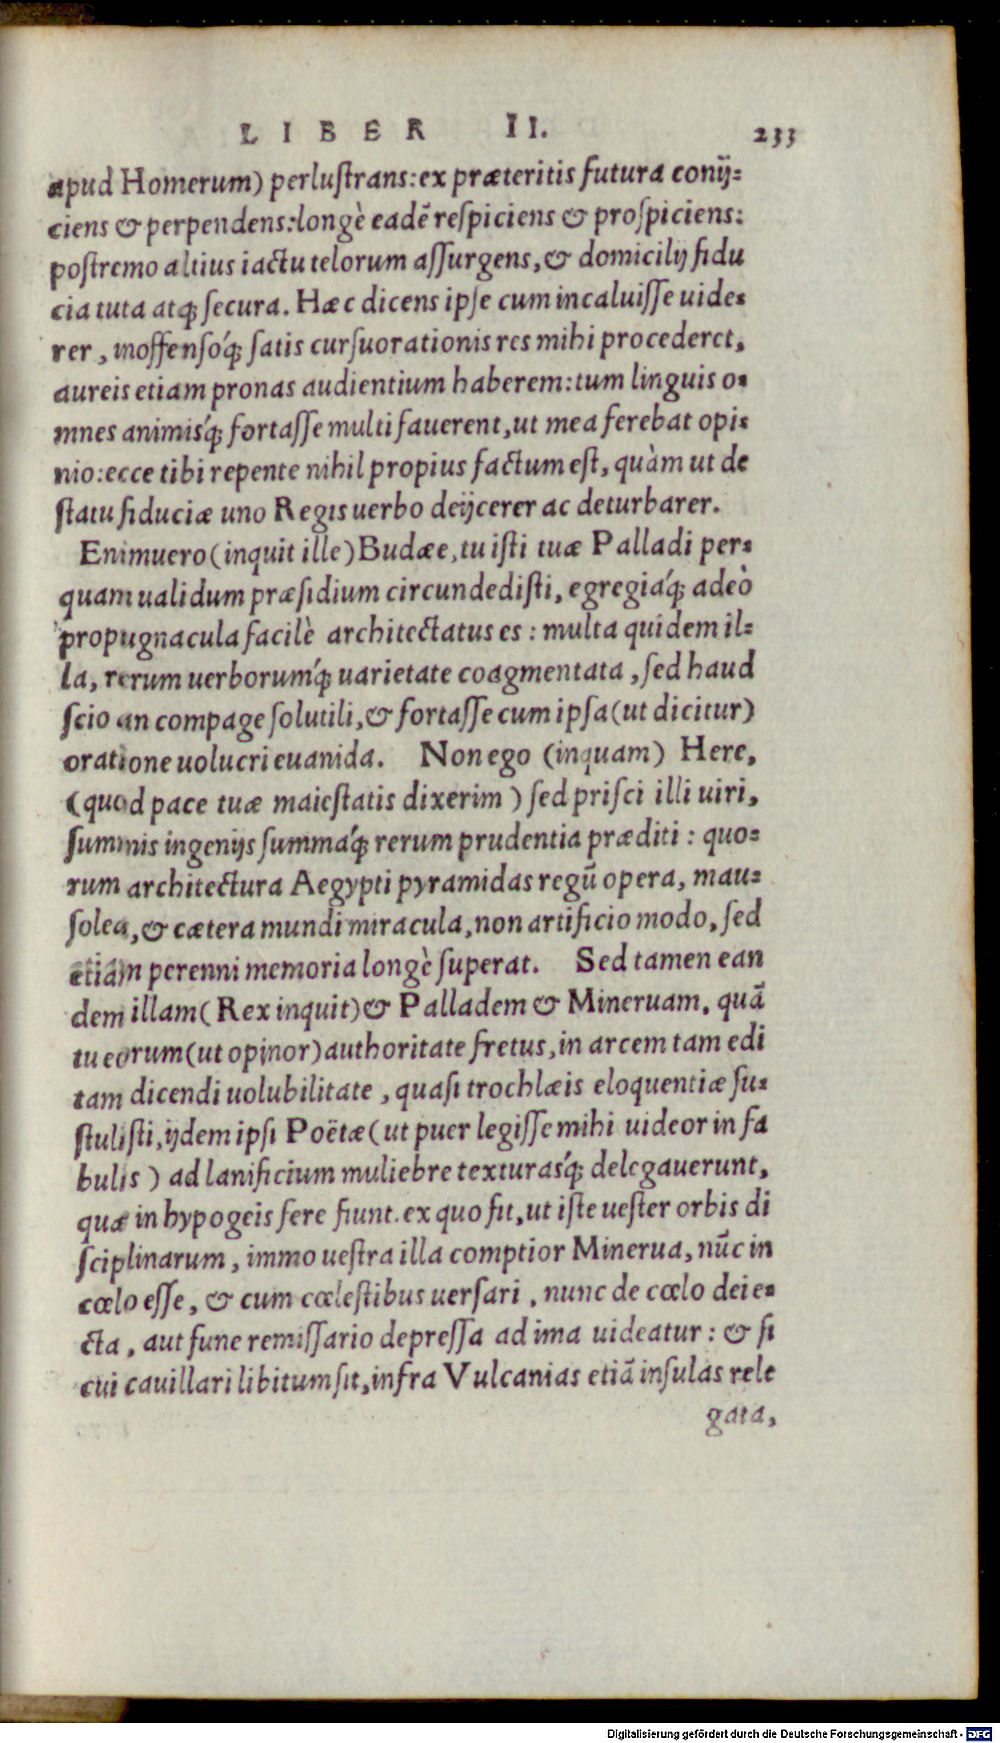 LIBER II. 233
apud Homerum) perluſtrans: ex præteritis futura conij=
ciens & perpendens: longè eadē reſpiciens & proſpiciens:
poſtremo altius iactu telorum aſſurgens, & domicilij fidu
cia tuta atq; ſecura. Hæc dicens ipſe cum incaluiſſe uide=
rer, inoffenſoq́; ſatis curſu orationis res mihi procederet,
aureis etiam pronas audientium haberem: tum linguis o=
mnes animisq́; fortaſſe multi fauerent, ut mea ferebat opi=
nio: ecce tibi repente nihil propius factum eſt, quàm ut de
ſtatu fiduciæ uno Regis uerbo deijcerer ac deturbarer.
Enimuero (inquit ille) Budæe, tu iſti tuæ Palladi per=
quam ualidum præſidium circundediſti, egregiaq́; adeò
propugnacula facilè architectatus es: multa quidem il=
la, rerum uerborumq́; uarietate coagmentata, ſed haud
ſcio an compage ſolutili, & fortaſſe cum ipſa (ut dicitur)
oratione uolucri euanida. Non ego (inquam) Here,
(quod pace tuæ maieſtatis dixerim) ſed priſci illi uiri,
ſummis ingenijs ſummaq́; rerum prudentia præditi: quo=
rum architectura Aegypti pyramidas regū opera, mau=
ſolea, & cætera mundi miracula, non artificio modo, ſed
etiam perenni memoria longè ſuperat. Sed tamen ean
dem illam (Rex inquit) & Palladem & Mineruam, quā
tu eorum (ut opinor) authoritate fretus, in arcem tam edi
tam dicendi uolubilitate, quaſi trochlæis eloquentiæ ſu=
ſtuliſti, ijdem ipſi Poëtæ (ut puer legiſſe mihi uideor in fa
bulis) ad lanificium muliebre texturasq́; delegauerunt,
quæ in hypogeis fere fiunt. ex quo fit, ut iſte ueſter orbis di
ſciplinarum, immo ueſtra illa comptior Minerua, nūc in
cœlo eſſe, & cum cœleſtibus uerſari, nunc de cœlo deie=
cta, aut fune remiſſario depreſſa ad ima uideatur: & ſi
cui cauillari libitum ſit, infra Vulcanias etiā inſulas rele
gata,
Digitalisierung gefördert durch die Deutsche Forschungsgemeinschaft - DFG